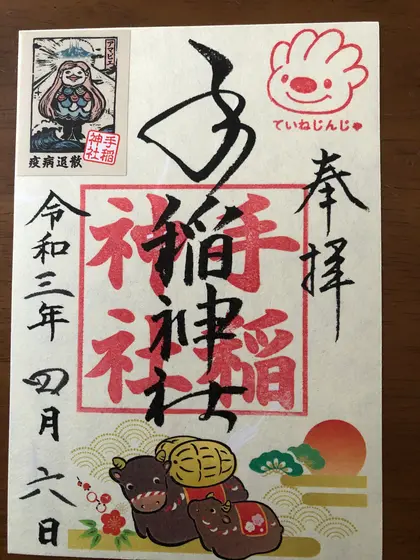 奉拝
ていねじんじゃ
手稲神社
手稲
神社
アマビエ
手稲
神社
疫病退散
令和三年 四月六日